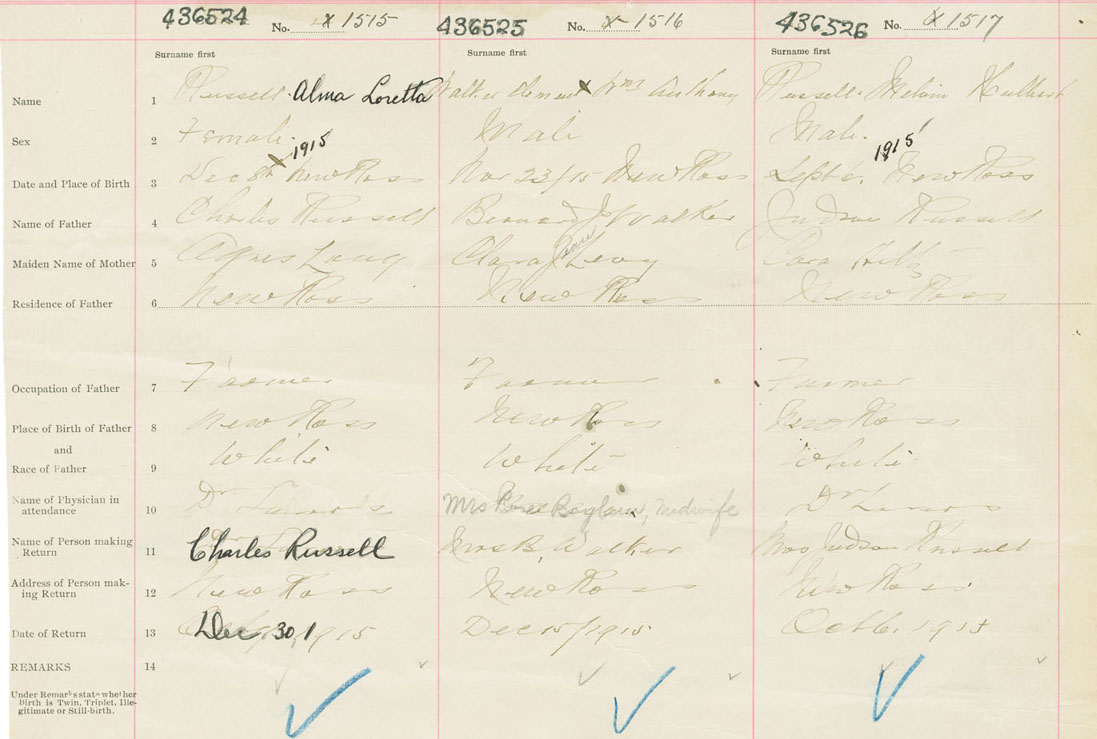 436524 No. x 1515 436525 No. x 1516 436526 No. x 1517
Surname first Surname first Surname first
Name 1 Russell Alma Loretta Walker Clement x Wm Anthony Russell Melvin Hulbert
Sex 2 Female Male Male
1915 1915
Date and Place of Birth 3 Dec 8th x New Ross Nov 23/15 New Ross Sept 6. New Ross
Name of Father 4 Charles Russell Bernard J Walker Judson Russell
Maiden Name of Mother 5 Agnes Clara Jean Levy Hiltz
Residence of Father 6 New Ross New Ross New Ross
Occupation of Father 7 Farmer Farmer Farmer
Place of Birth of Father 8 New Ross New Ross New Ross
and
Race of Father 9 White White White
Name of Physician in
attendance 10 Dr Mrs Boylan, Midwife Dr
Name of Person making
Return 11 Charles Russell Mrs B. Walker Mrs Judson Russell
Address of Person mak-
ing Return 12 New Ross New Ross New Ross
Date of Return 13 Dec 30 1915 Dec 15/1915 Oct 6. 1915
REMARKS 14
Under Remarks state whether
Birth is Twin, Triplet, Ille-
gitimate or Still-birth.